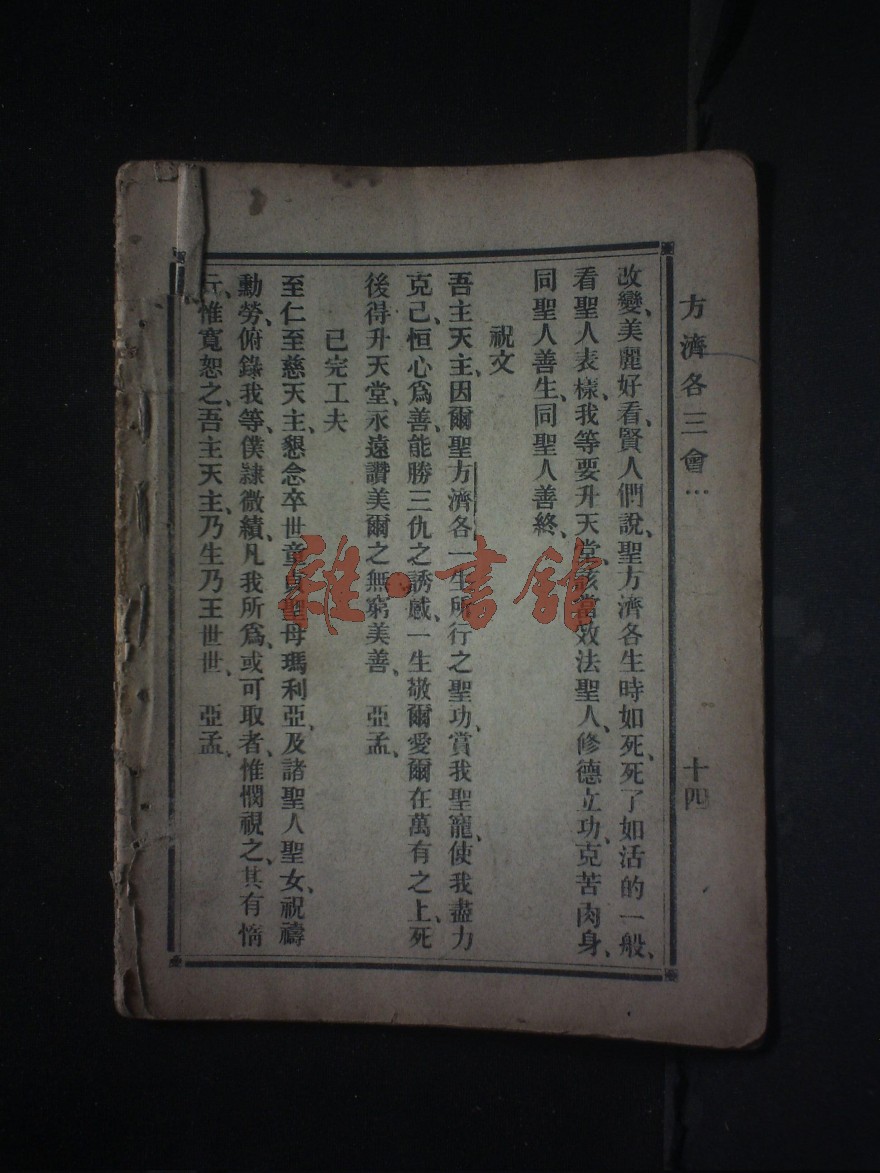 方濟各三會… 十四
改變、美麗好看、賢人們說、聖方濟各生時如死、死了如活的一般、
看聖人表樣、我等要升天堂、該當效法聖人、修德立功、克苦肉身、
同聖人善生、同聖人善終、
祝文
吾主天主、因爾聖方濟各一生所行之聖功、賞我聖寵、使我盡力
克己、恒心為善、能勝三仇之誘感、一生敬爾愛爾在萬有之上、死
後得升天堂、永遠讚美爾之無窮美善、 亞孟、
已完工夫
至仁至慈天主、懇念卒世童貞聖母瑪利亞、及諸聖人聖女、祝禱
勳勞、俯錄我等、僕隷微績、凡我所為、或可取者、惟憫視之、其有惰
、惟寬恕之、吾主天主、乃生乃王世世、 亞孟、
雜·書館